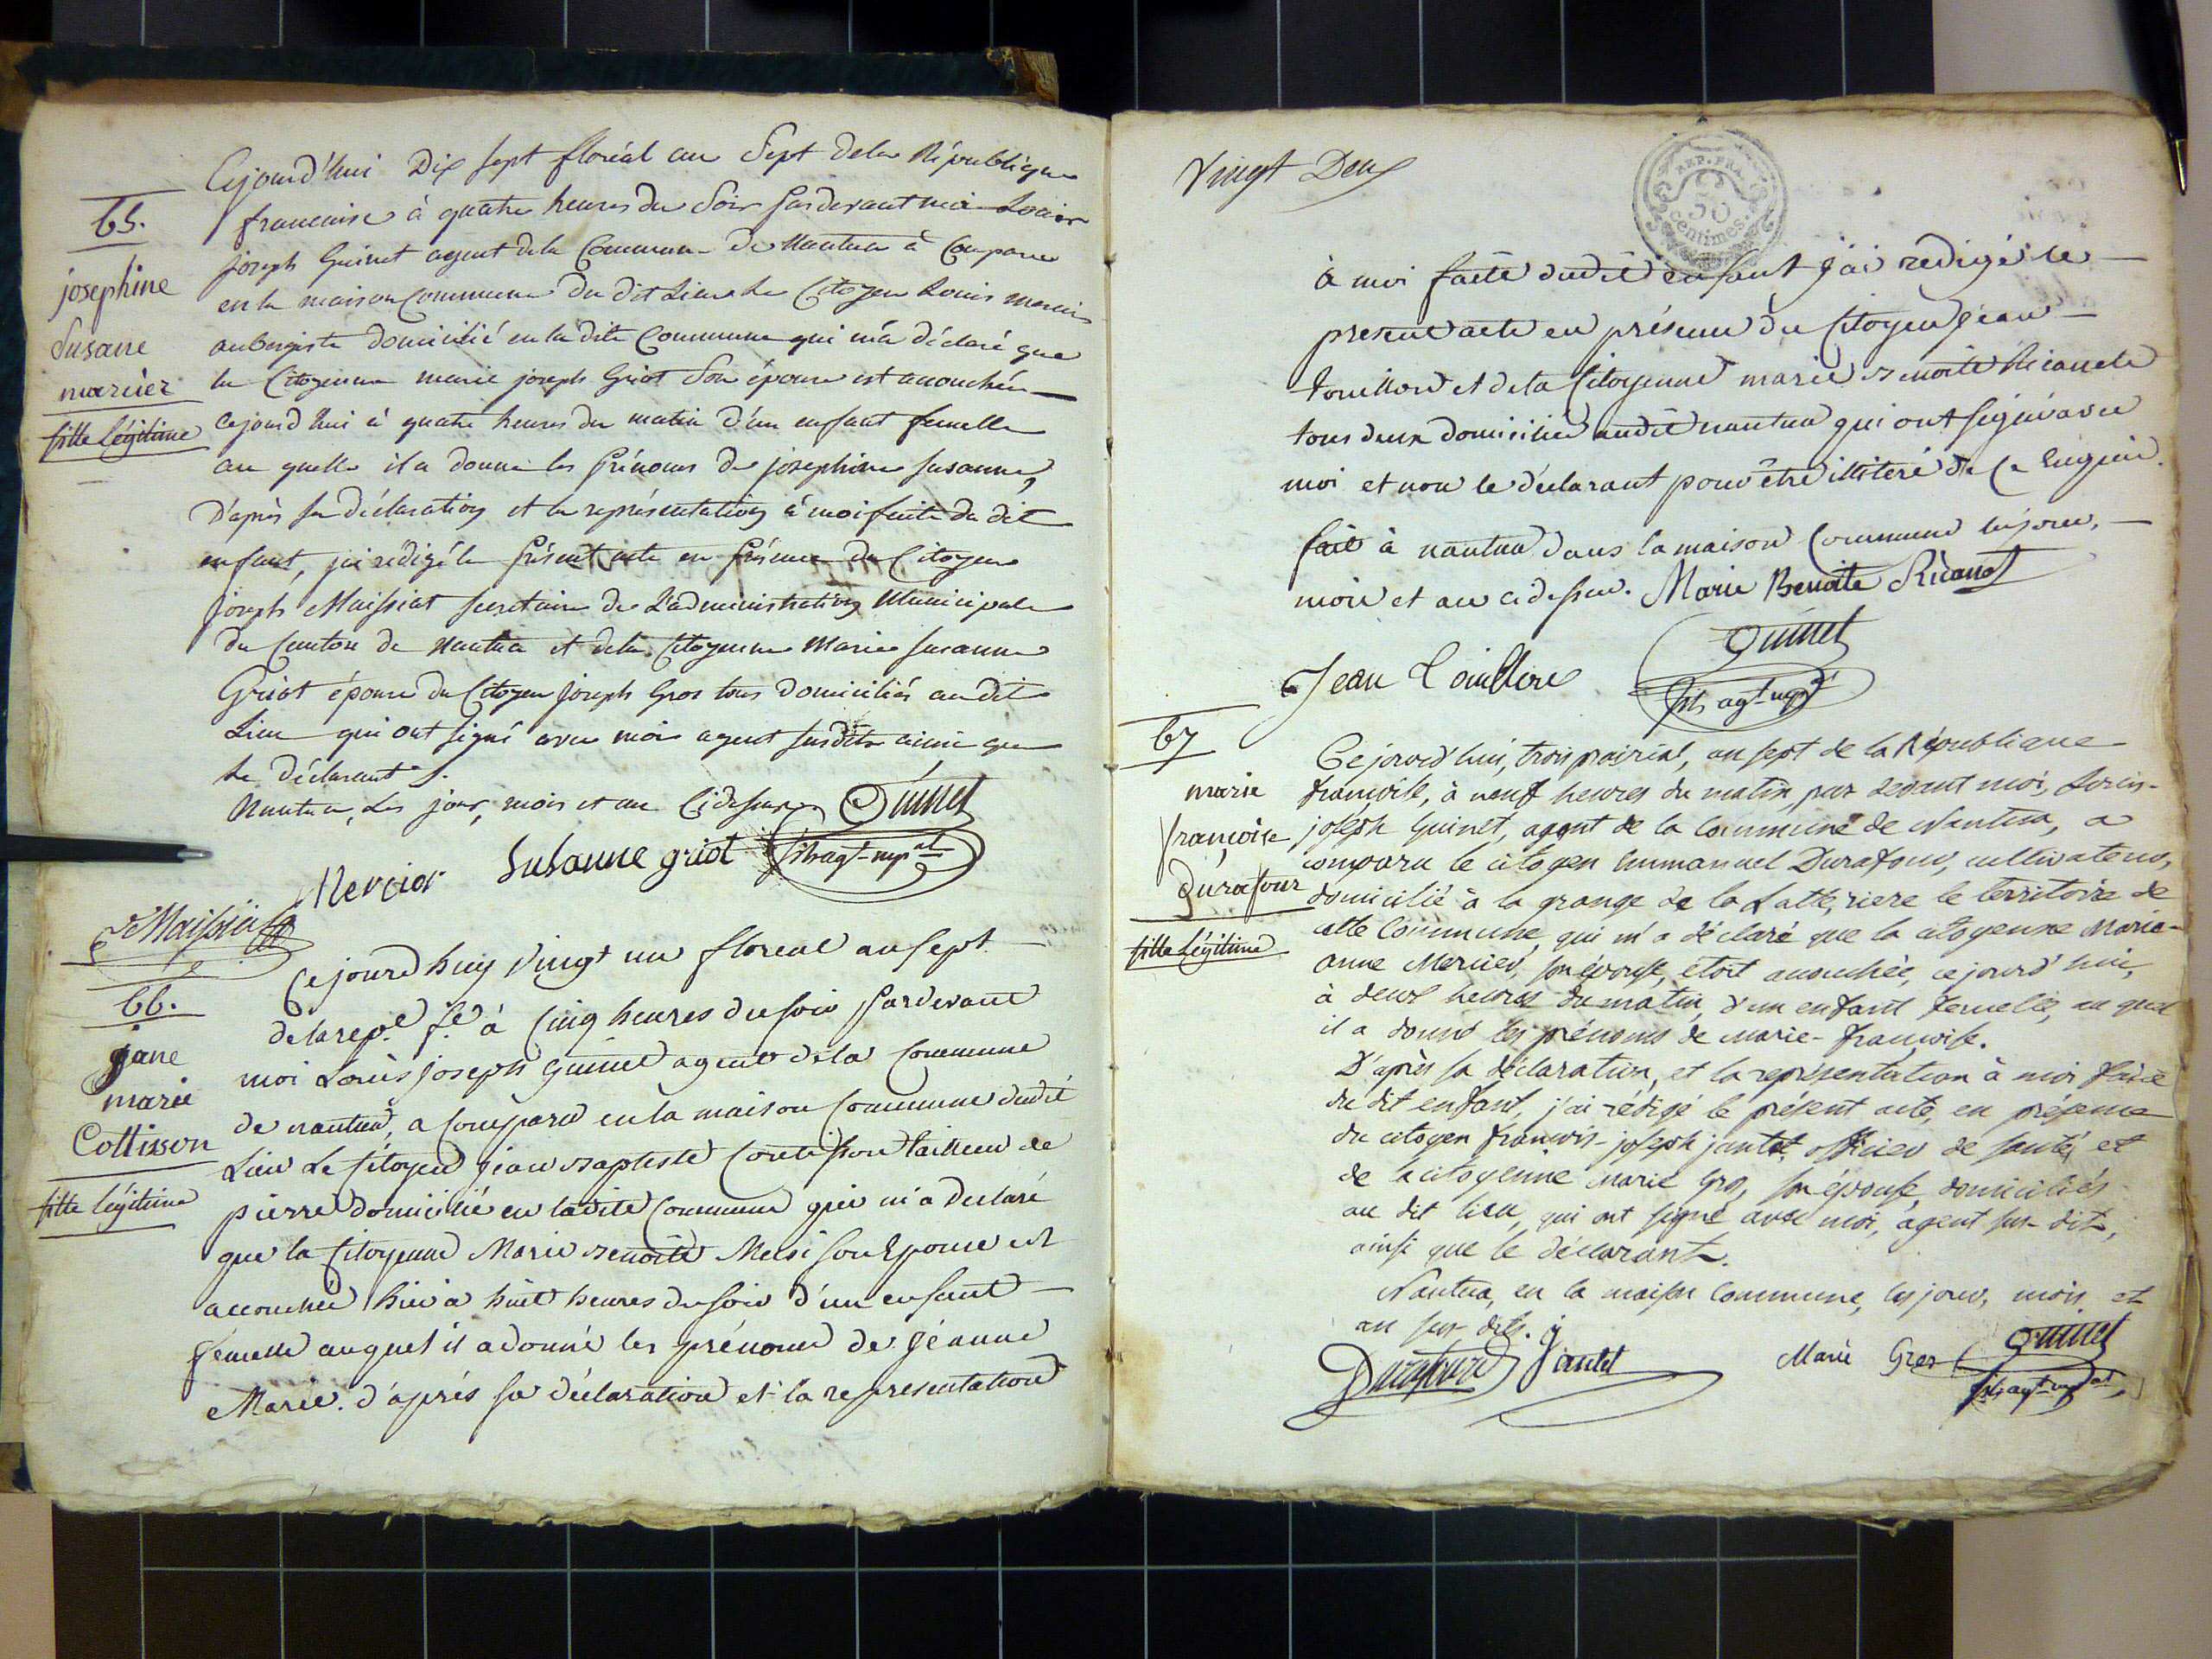 65.
josephine
Susane
mercier
fille Légitime
Cejourd'hui Dix sept floréal an Sept dela République
francaise à quatre heures du Soir pardevant moi Louis
joseph Guinet agent dela Commune de Nantua à Comparu
en la maison Commune du dit Lieu le Citoyen Louis mercier
aubergiste domicilié en la dite Commune qui m'a déclaré que
la Citoyenne marie joseph Griot Son épouse est accouchée
cejourd'hui à quatre heures du matin d'un enfant femelle
au quelle il a donné les Prénoms de josephine susanne,
D'après sa déclaration et la représentation à moi faite du dit
enfant, j'ai rédigé le Présent acte en présence du Citoyen
joseph Maissiat secretaire de L'administration Municipale
du Canton de Nantua et dela Citoyenne Marie susanne
Griot épouse du Citoyen joseph Gros tous domiciliés au dit
Lieu qui ont signé avec moi agent susdit ainsi que
le déclarant
Nantua, Les jour, mois et an Cidessus Guinet
Mercier Susanne griot agt mpal
Maissiat
66.
jane
marie
Cottisson
fille légitime
Cejourd'huy vingt un floreal an sept
delarepe. fe. à Cinq heures du soir pardevant
moi Louis joseph guinet agent dela Commune
de nantua, a comparu en la maison Commune dudit
Lieu Le Citoyen jean baptiste tailleur de
pierre domicilié en ladite Commune qui m'a declaré
que la Citoyenne Marie benoite son Epouse est
accouchée hier à huit heures du soir d'un enfant
femelle auquel il a donné les prénoms de Jéanne
Marie. d'aprés sa déclaration et la representation
Vingt Deux
REP. FRA.
50
centimes.
à moi faite dudit enfant j'ai redigé le
present acte en présence du Citoyen jean
et de la Citoyenne marie benoite
tous deux domiciliés audit nantua qui ont signé avec
moi et non le déclarant pour être illiteré de ce Enquis.
fait à nantua dans la maison Commune les jour,
mois et an ci dessus. Marie Benoite Ricanet
Guinet
Jean agt mpal
67
marie
françoise
Durafour
fille Légitime
Cejourd'hui, trois prairial, an sept de la République
françoise, à neuf heures du matin, par devant moi, Louis-
joseph Guinet, agent de la Commune de Nantua, a
comparu le citoyen Emmanuel Durafour, cultivateur,
domicilié à la grange de la riere le territoire de
cette Commune, qui m'a déclaré que la citoyenne Marie-
anne Mercier, son épouse, étoit accouchée, cejourd'hui,
à deux heures du matin, d'un enfant femelle, au quel
il a donné les prénoms de marie-françoise.
D'après sa déclaration, et la représentation à moi faite
du dit enfant, j'ai rédigé le présent acte, en présence
du citoyen francois-joseph jantet, officier de santé, et
de la citoyenne marie Gros, son épouse, domiciliés
au dit lieu, qui ont signé avec moi, agent sus-dit,
ainsi que le déclarant.
Nantua, en la maison Commune, les jour, mois et
an sus-dits.
Durafour Jantet Marie Gros Guinet
agt mpal